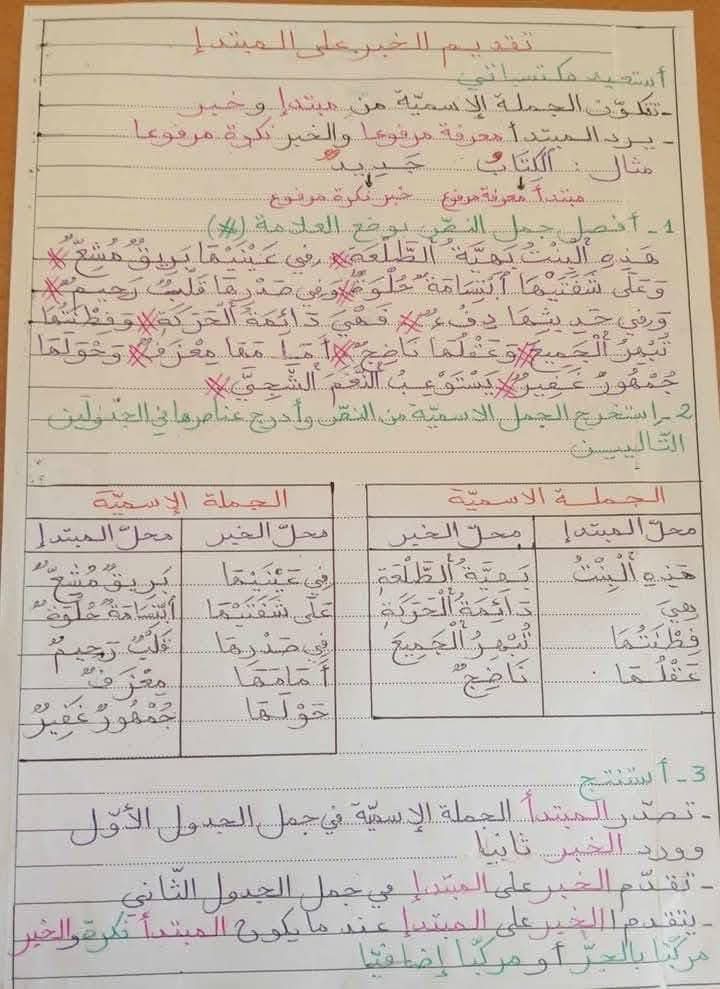 تقديم الخبر على المبتدإ
أستعيد مكتسباتي
- تتكوّن الجملة الإسميّة من مبتدإ وخبر
- يرد المبتدأ معرفة مرفوعا والخبر نكرة مرفوعا
مثال : الْكِتَابُ جَدِيدٌ
مبتدأ معرفة مرفوع خبر نكرة مرفوع
1 - أفصل جمل النصّ بوضع العلامة (//)
هَذِهِ الْبِنْتُ بَهِيَّةُ الطَّلْعَةِ // فِي عَيْنَيْهَا بَرِيقٌ مُشِعٌّ //
وَعَلَى شَفَتَيْهَا ابْتِسَامَةٌ حُلْوَةٌ // وَفِي صَدْرِهَا قَلْبٌ رَحِيمٌ //
وَفِي حَدِيثِهَا دِفْءٌ // فَهْيَ دَائِمَةُ الْحَرَكَةِ // وَفِطْنَتُهَا
تُبْهِرُ الْجَمِيعَ // وَعَقْلُهَا نَاضِجٌ // أَمَامَهَا مِعْزَفٌ // وَحَوْلَهَا
جُمْهُورٌ غَفِيرٌ // يَسْتَوْعِبُ النَّغَمَ الشَّجِيَّ //
2 - استخرج الجمل الاسميّة من النصّ وأدرج عناصرها في الجدولين
التّاليين
الجملة الاسميّة الجملة الإسميّة
محلّ المبتدإ محلّ الخبر محلّ الخبر محلّ المبتدإ
هَذِهِ الْبِنْتُ بَهِيَّةُ الطَّلْعَةِ فِي عَيْنَيْهَا بَرِيقٌ مُشِعٌّ
هِيَ دَائِمَةُ الْحَرَكَةِ عَلَى شَفَتَيْهَا ابْتِسَامَةٌ حُلْوَةٌ
فِطْنَتُهَا تُبْهِرُ الْجَمِيعَ فِي صَدْرِهَا قَلْبٌ رَحِيمٌ
عَقْلُهَا نَاضِجٌ أَمَامَهَا مِعْزَفٌ
حَوْلَهَا جُمْهُورٌ غَفِيرٌ
3 - أستنتج
- تصدّر المبتدأ الجملة الإسميّة في جمل الجدول الأوّل
وورد الخبر ثانيا
- تقدّم الخبر على المبتدإ في جمل الجدول الثّاني
- يتقدم الخبر على المبتدإ عندما يكون المبتدأ نكرة والخبر
مركّبا بالجرّ أو مركّبا إضافيّا